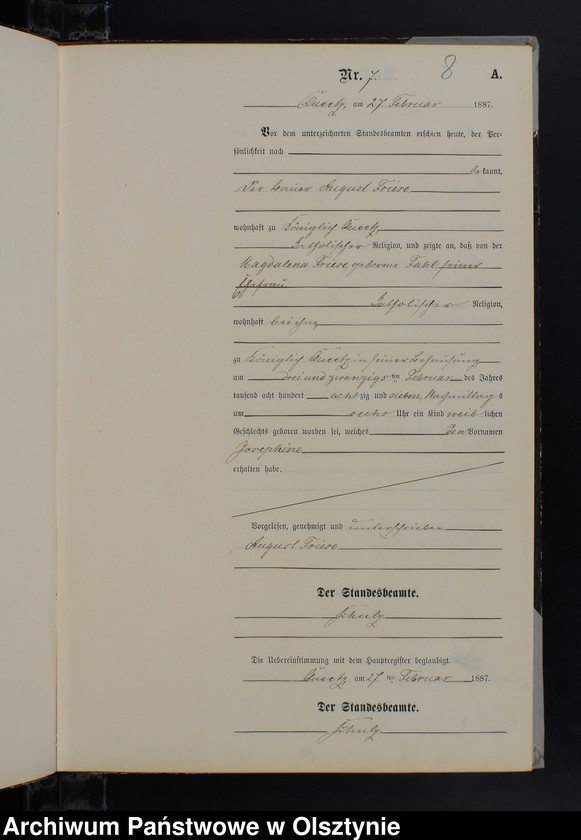 8
Nr. 7. A.
Queetz am 27. Februar 1887.
Vor dem unterzeichneten Standesbeamten erschien heute, der Per-
sönlichkeit nach
bekannt,
der Bauer August Friese
wohnhaft zu Königlich Queetz
katholischer Religion, und zeigte an, daß von der
Magdalena Friese geborene Fahl, seiner
Ehefrau
katholischer Religion,
wohnhaft bei ihm
zu Königlich Queetz in seiner Behausung
am drei und zwanzigsten Februar des Jahres
tausend acht hundert achtzig und sieben, Nachmittags
um sechs Uhr ein Kind weiblichen
Geschlechts geboren worden sei, welches den Vornamen
Josephine
erhalten habe.
Vorgelesen, genehmigt und unterschrieben
August Friese
Der Standesbeamte.
Schulz
Die Uebereinstimmung mit dem Hauptregister beglaubigt.
Queetz am 27. ten Februar 1887.
Der Standesbeamte.
Schulz
Archiwum Państwowe w Olsztynie